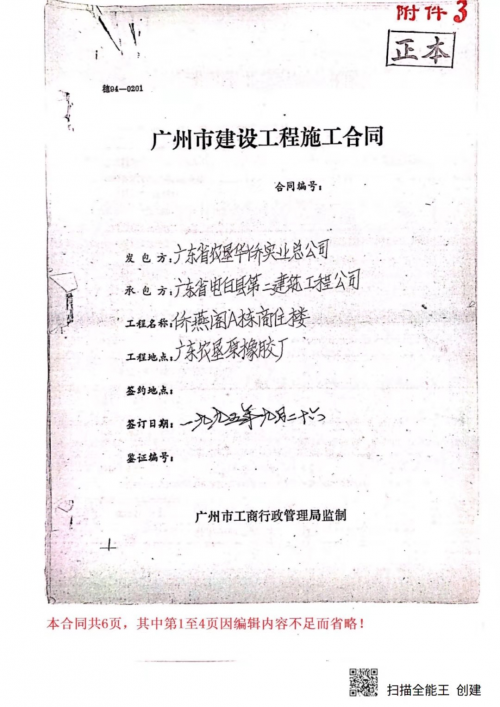 附件3
正本
穗94—0201
广州市建设工程施工合同
合同编号：
发包方：广东省农垦华侨实业总公司
承包方：广东省电白县第二建筑工程公司
工程名称：侨燕阁A栋商住楼
工程地点：广东农垦橡胶厂
签约地点：
签订日期：一九九五年九月二十六
签证编号：
广州市工商行政管理局监制
本合同共6页，其中第1至4页因编辑内容不足而省略！
扫描全能王 创建